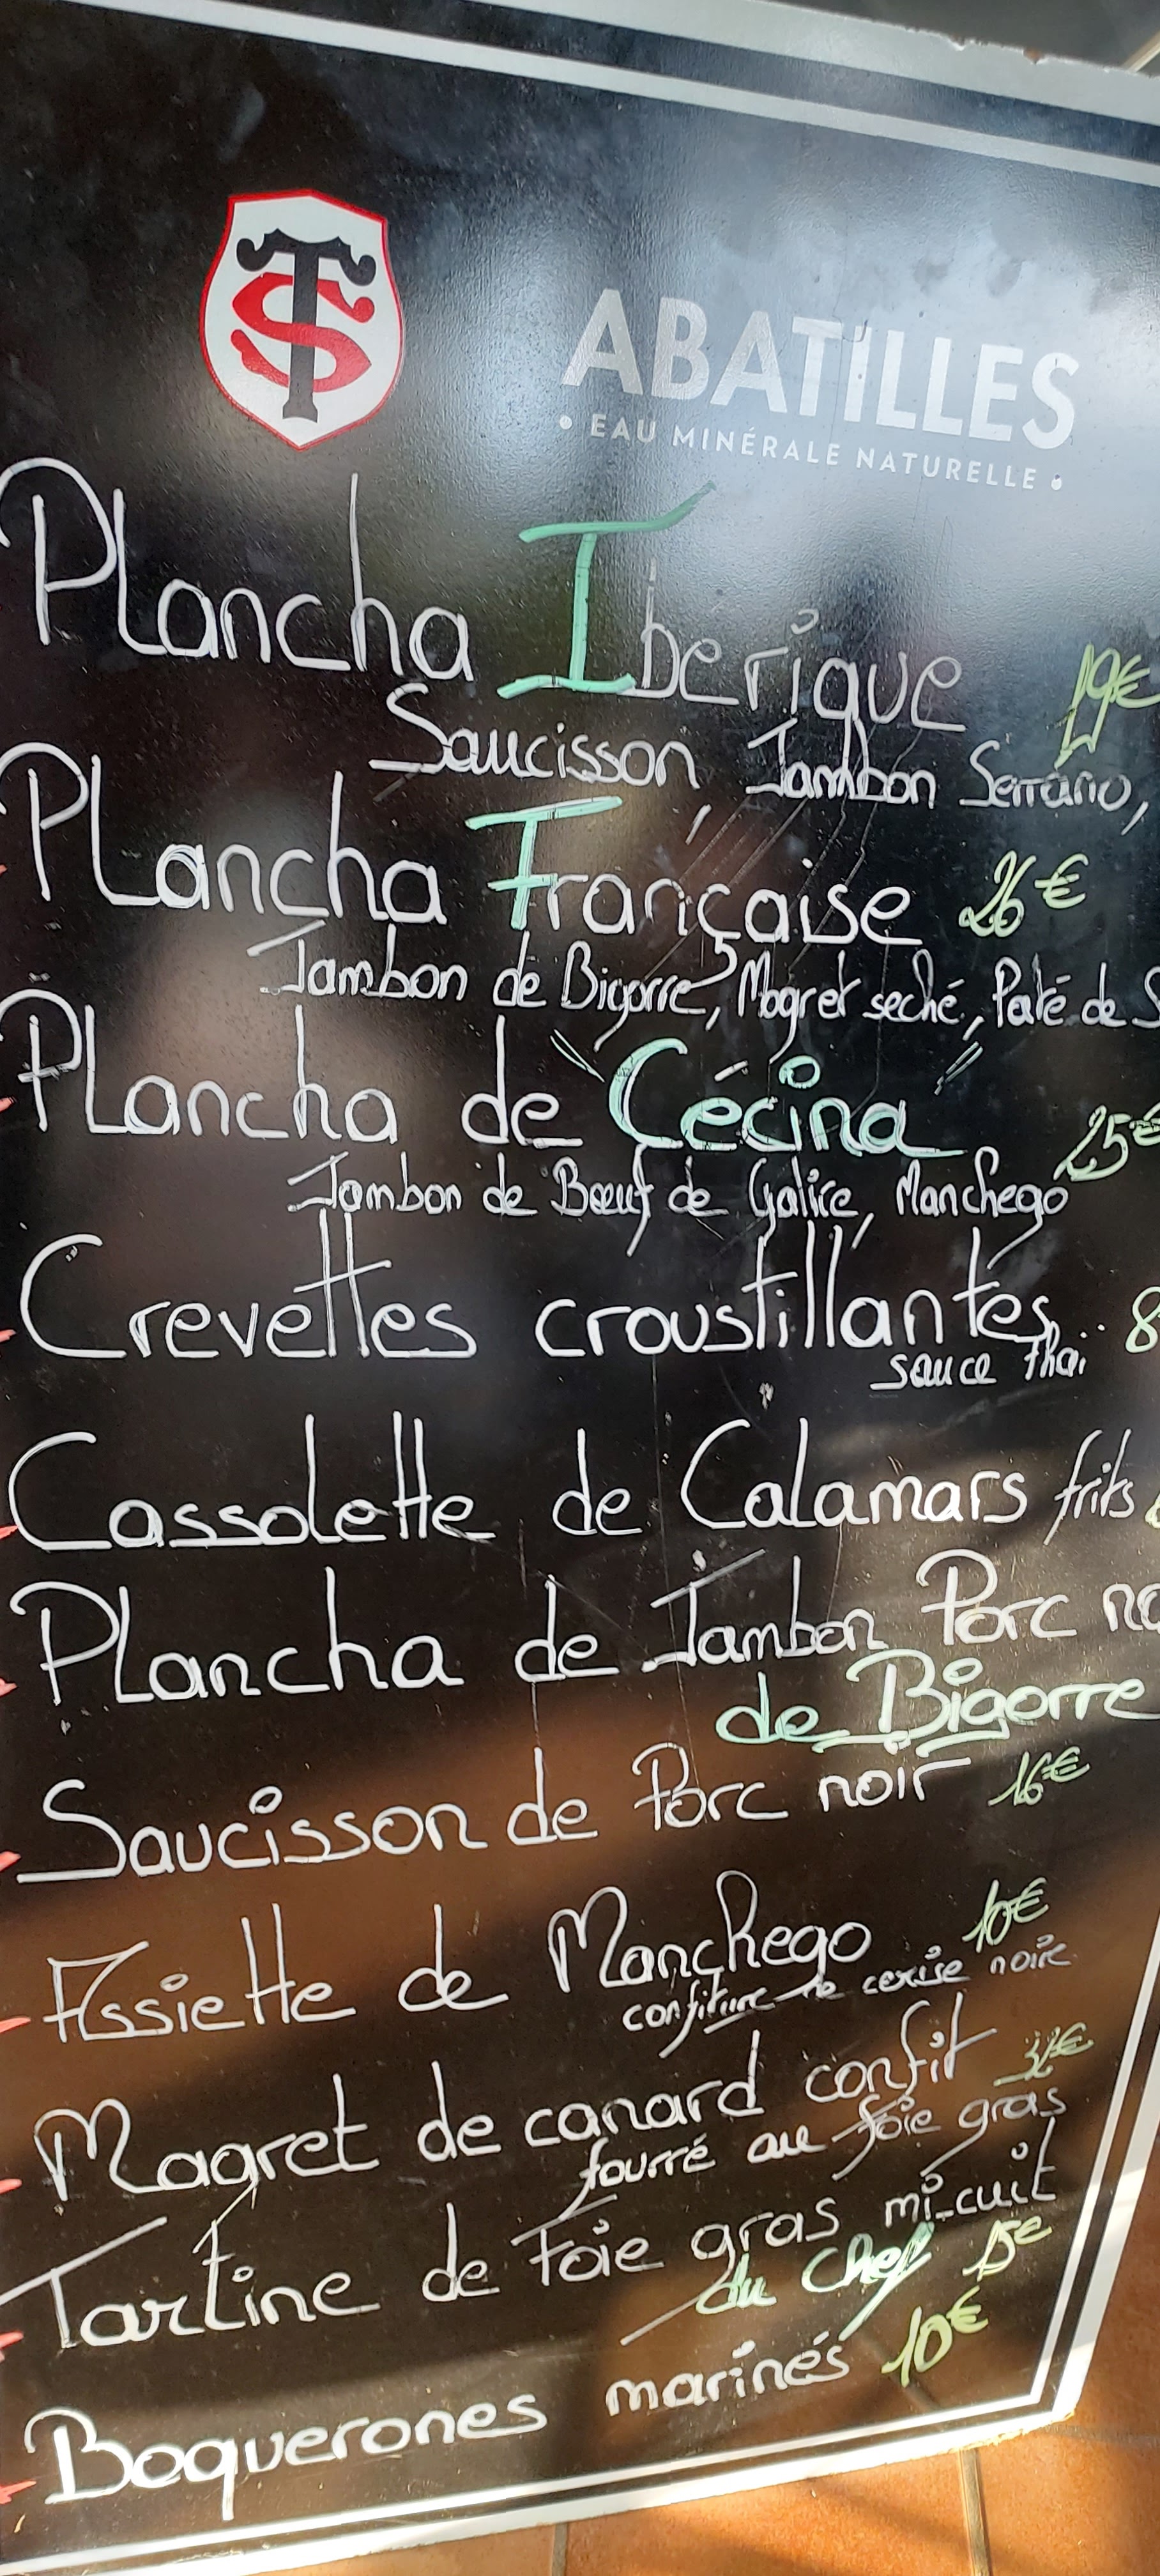 TS
ABATILLES
• EAU MINÉRALE NATURELLE •
Plancha Ibérique 19€
Saucisson, Jambon Serrano,
Plancha Française 26€
Jambon de Bigorre, Magret seché, Paté de
Plancha de "Cécina" 25€
Jambon de Bœuf de Galice, Manchego
Crevettes croustillantes 8
sauce thaï
Cassolette de Calamars frits
Plancha de Jambon Porc
de Bigorre
Saucisson de Porc noir 16€
Assiette de Manchego 10€
confiture de cerise noire
Magret de canard confit
fourré au foie gras
Tartine de Foie gras mi-cuit
du Chef 15€
Boquerones marinés 10€